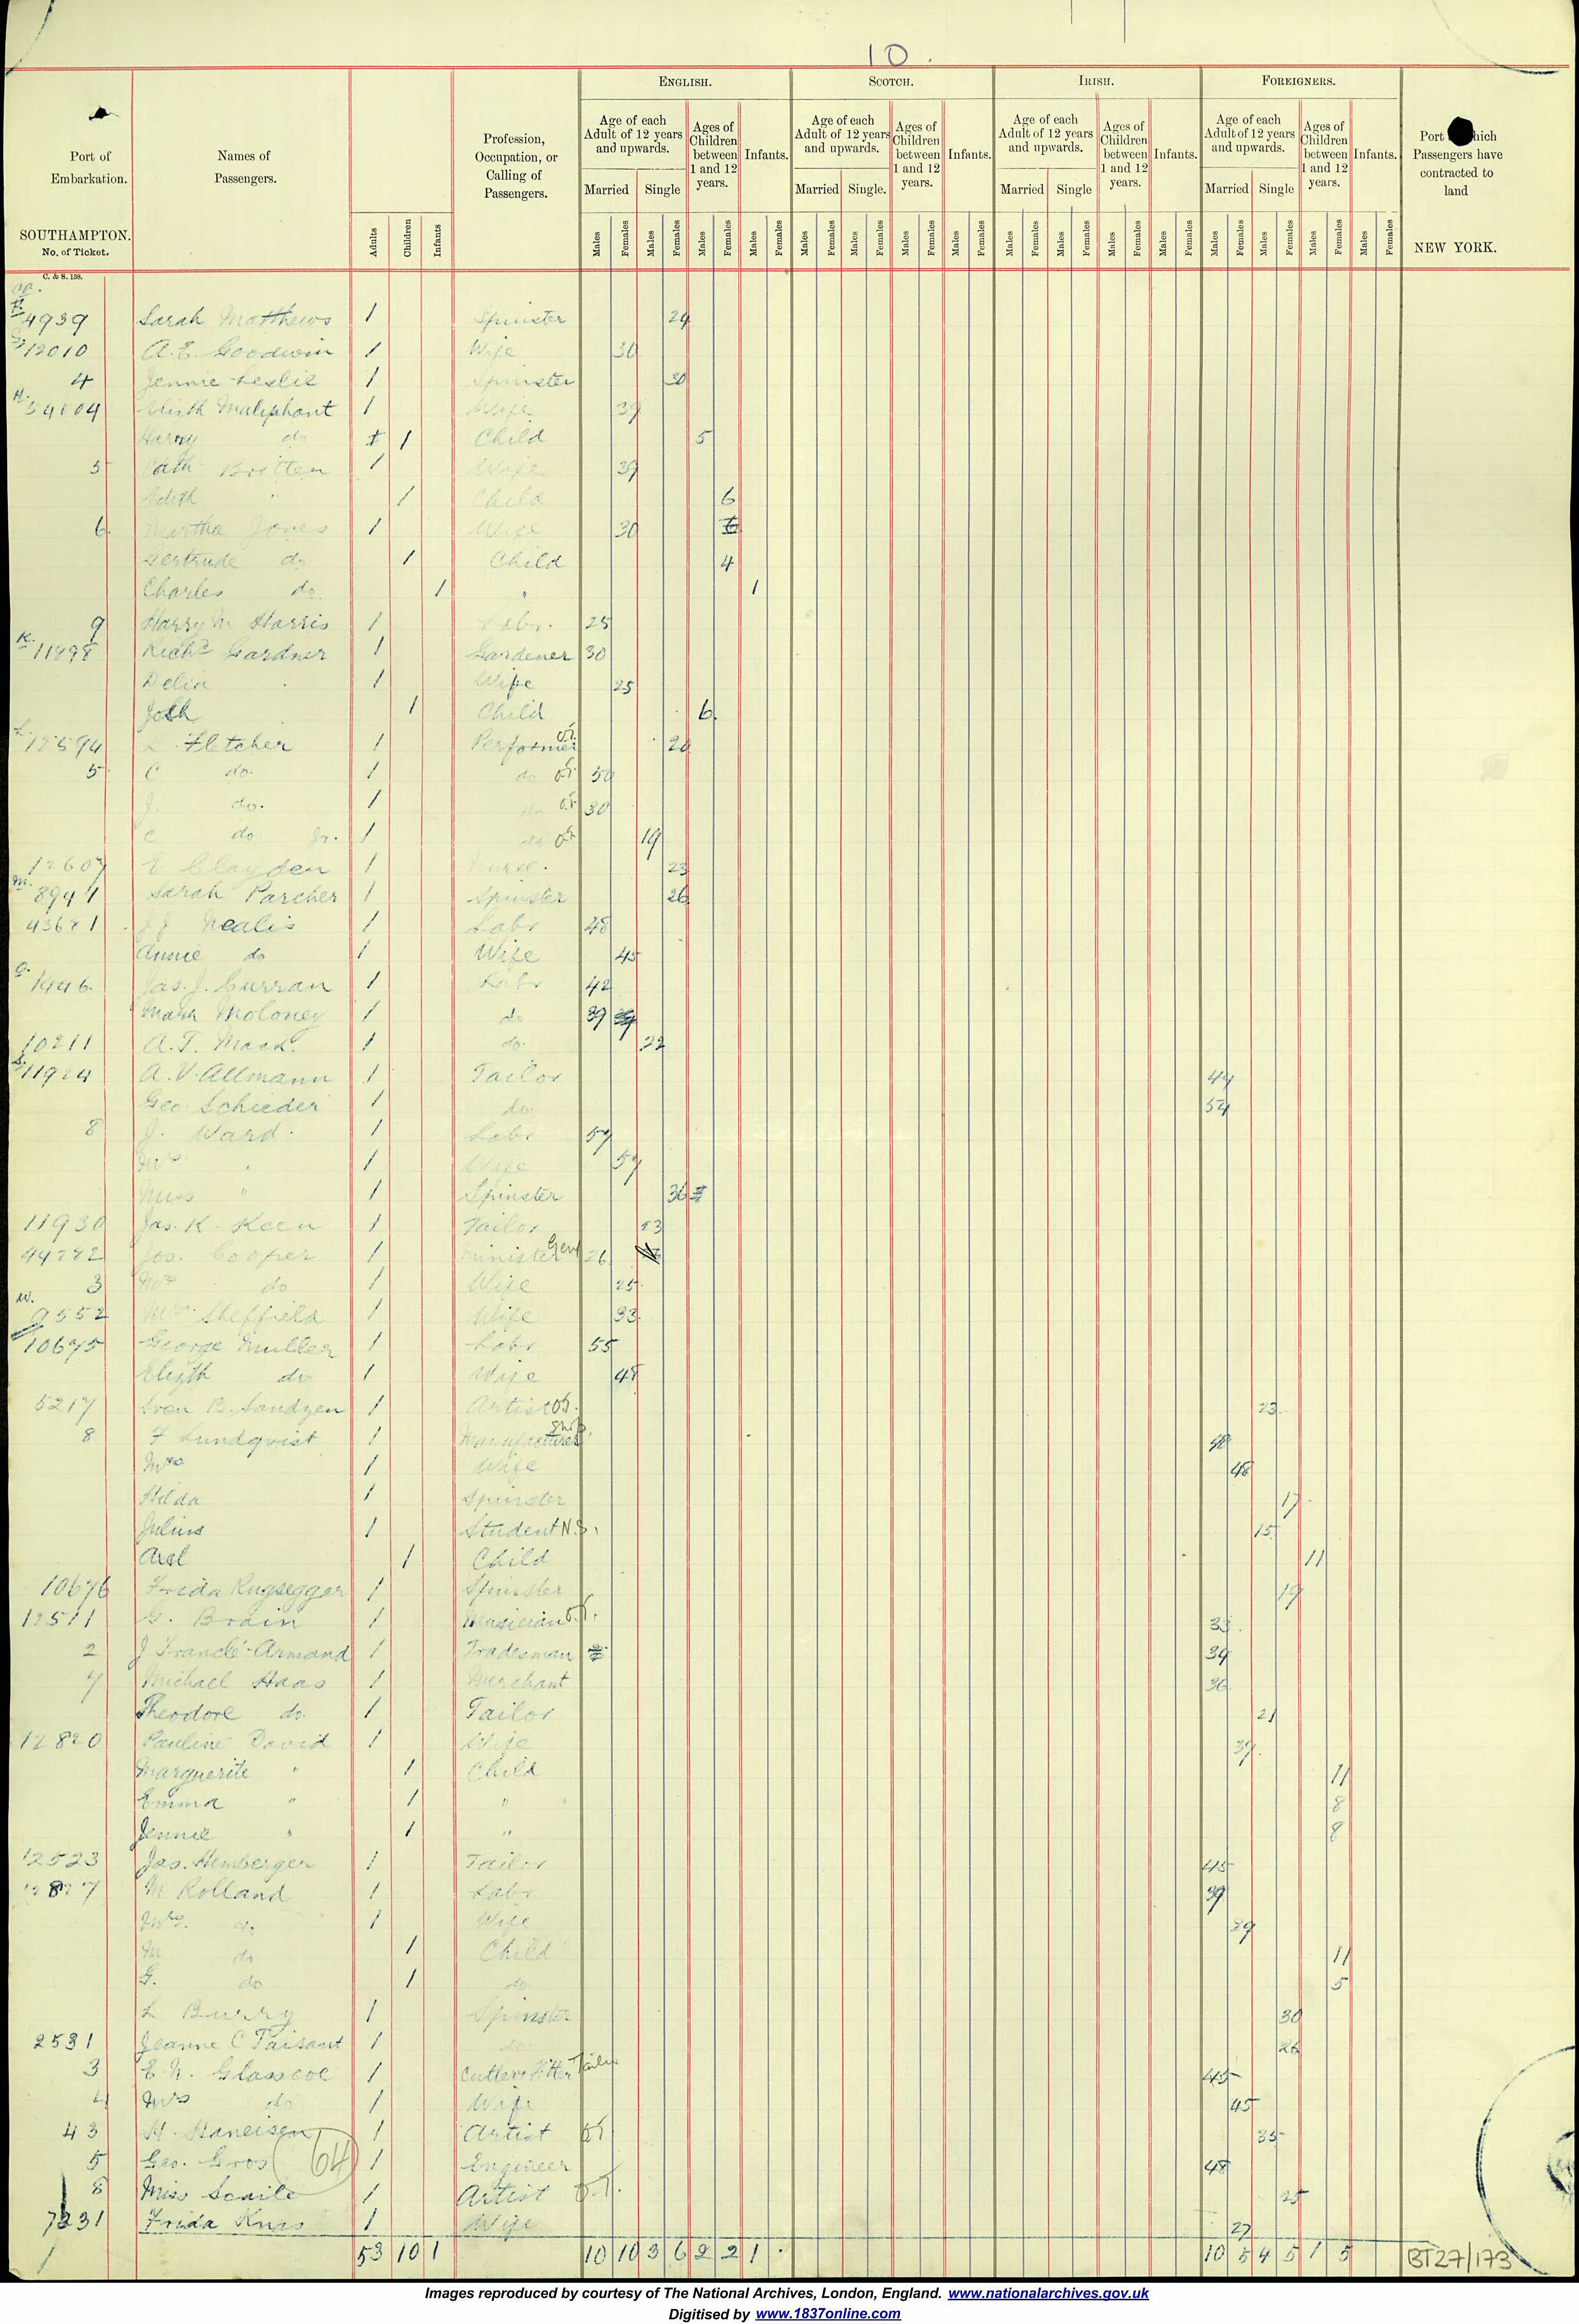 10.
ENGLISH. SCOTCH. IRISH. FOREIGNERS.
Port of Embarkation.
Names of Passengers.
Profession, Occupation, or Calling of Passengers.
Age of each Adult of 12 years and upwards. Ages of Children between 1 and 12 years. Infants.
Age of each Adult of 12 years and upwards. Ages of Children between 1 and 12 years. Infants.
Age of each Adult of 12 years and upwards. Ages of Children between 1 and 12 years. Infants.
Age of each Adult of 12 years and upwards. Ages of Children between 1 and 12 years. Infants.
Port hich Passengers have contracted to land
Married Single Married Single. Married Single Married Single
SOUTHAMPTON.
No. of Ticket.
Adults Children Infants
Males Females Males Females Males Females Males Females
Males Females Males Females Males Females Males Females
Males Females Males Females Males Females Males Females
Males Females Males Females Males Females Males Females
NEW YORK.
C. & S. 138.
4939 Sarah Matthews 1 Spinster 24
12010 A.E. Goodwin 1 Wife 30
4 Jennie Leslie 1 Spinster 30
Maliphant 1 Wife 39
Harry do 1 Child 5
5 Cath Britten 1 Wife 39
Edith " 1 Child 6
6 Martha Jones 1 Wife 30
Gertrude do 1 Child 4
Charles do 1 " 1
9 Harry M Harris 1 Labr. 25
K. 11898 Richd Gardner 1 Gardener 30
Delia 1 Wife 25
1 Child 6
L. Fletcher 1 Performer 20
5 C do. 1 do 50
J. do. 1 do 30
C do Jr. 1 do 19
12607 E Clayden 1 Nurse. 23
M. 8941 Sarah Parcher 1 Spinster 26
43681 J J Nealis 1 Labr 48
Annie do 1 Wife 45
1446. Jas. J. Curran 1 Labr 42
Mark Moloney 1 do 39
10211 A.T. 1 do. 22
11924 A.V. Allmann 1 Tailor 44
Geo. Schieder 1 do. 54
8 J. Ward. 1 Labr 57
Mrs " 1 Wife 57
Miss " 1 Spinster 36
11930 Jas. K. Keen 1 Tailor 23
44282 Jos. Cooper 1 Minister 26
3 Mrs do 1 Wife 25
W. 9552 Mrs Sheffield 1 Wife 33
10675 George Muller 1 Labr 55
Elizth do 1 Wife 48
5217 Sven B. Sandzen 1 Artist 23
8 F Lundqvist 1 Manufacturer 48
Mrs 1 Wife 48
Hilda 1 Spinster 17
Julius 1 Student N.S. 15
Axel 1 Child 11
10676 Frida Rugsegger 1 Spinster 19
12511 G. Brain 1 Musician 33
2 J Armand 1 Tradesman 39
7 Michael Haas 1 Merchant 36
Theodore do. 1 Tailor 21
12820 Pauline David 1 Wife 39
Marguerite " 1 Child 11
Emma " 1 " 8
Jennie " 1 " 8
12523 Jas. Hemberger 1 Tailor 45
M Rolland 1 Labr 39
Mrs. do 1 Wife 29
M do 1 Child 11
G. do 1 do. 5
L Burry 1 Spinster 30
2531 Jeanne C Taisant 1 do 26
3 E.N. Glasscoe 1 Cutter & Fitter Tailor 45
4 Mrs do 1 Wife 45
43 H. Staneisen 1 Artist 35
5 Geo. Gros 64 1 Engineer 48
8 Miss 1 Artist 25
7231 Frida 1 Wife 27
53 10 1 10 10 3 6 2 2 1 10 5 4 5 1 5
BT27/173
Images reproduced by courtesy of The National Archives, London, England. www.nationalarchives.gov.uk
Digitised by www.1837online.com